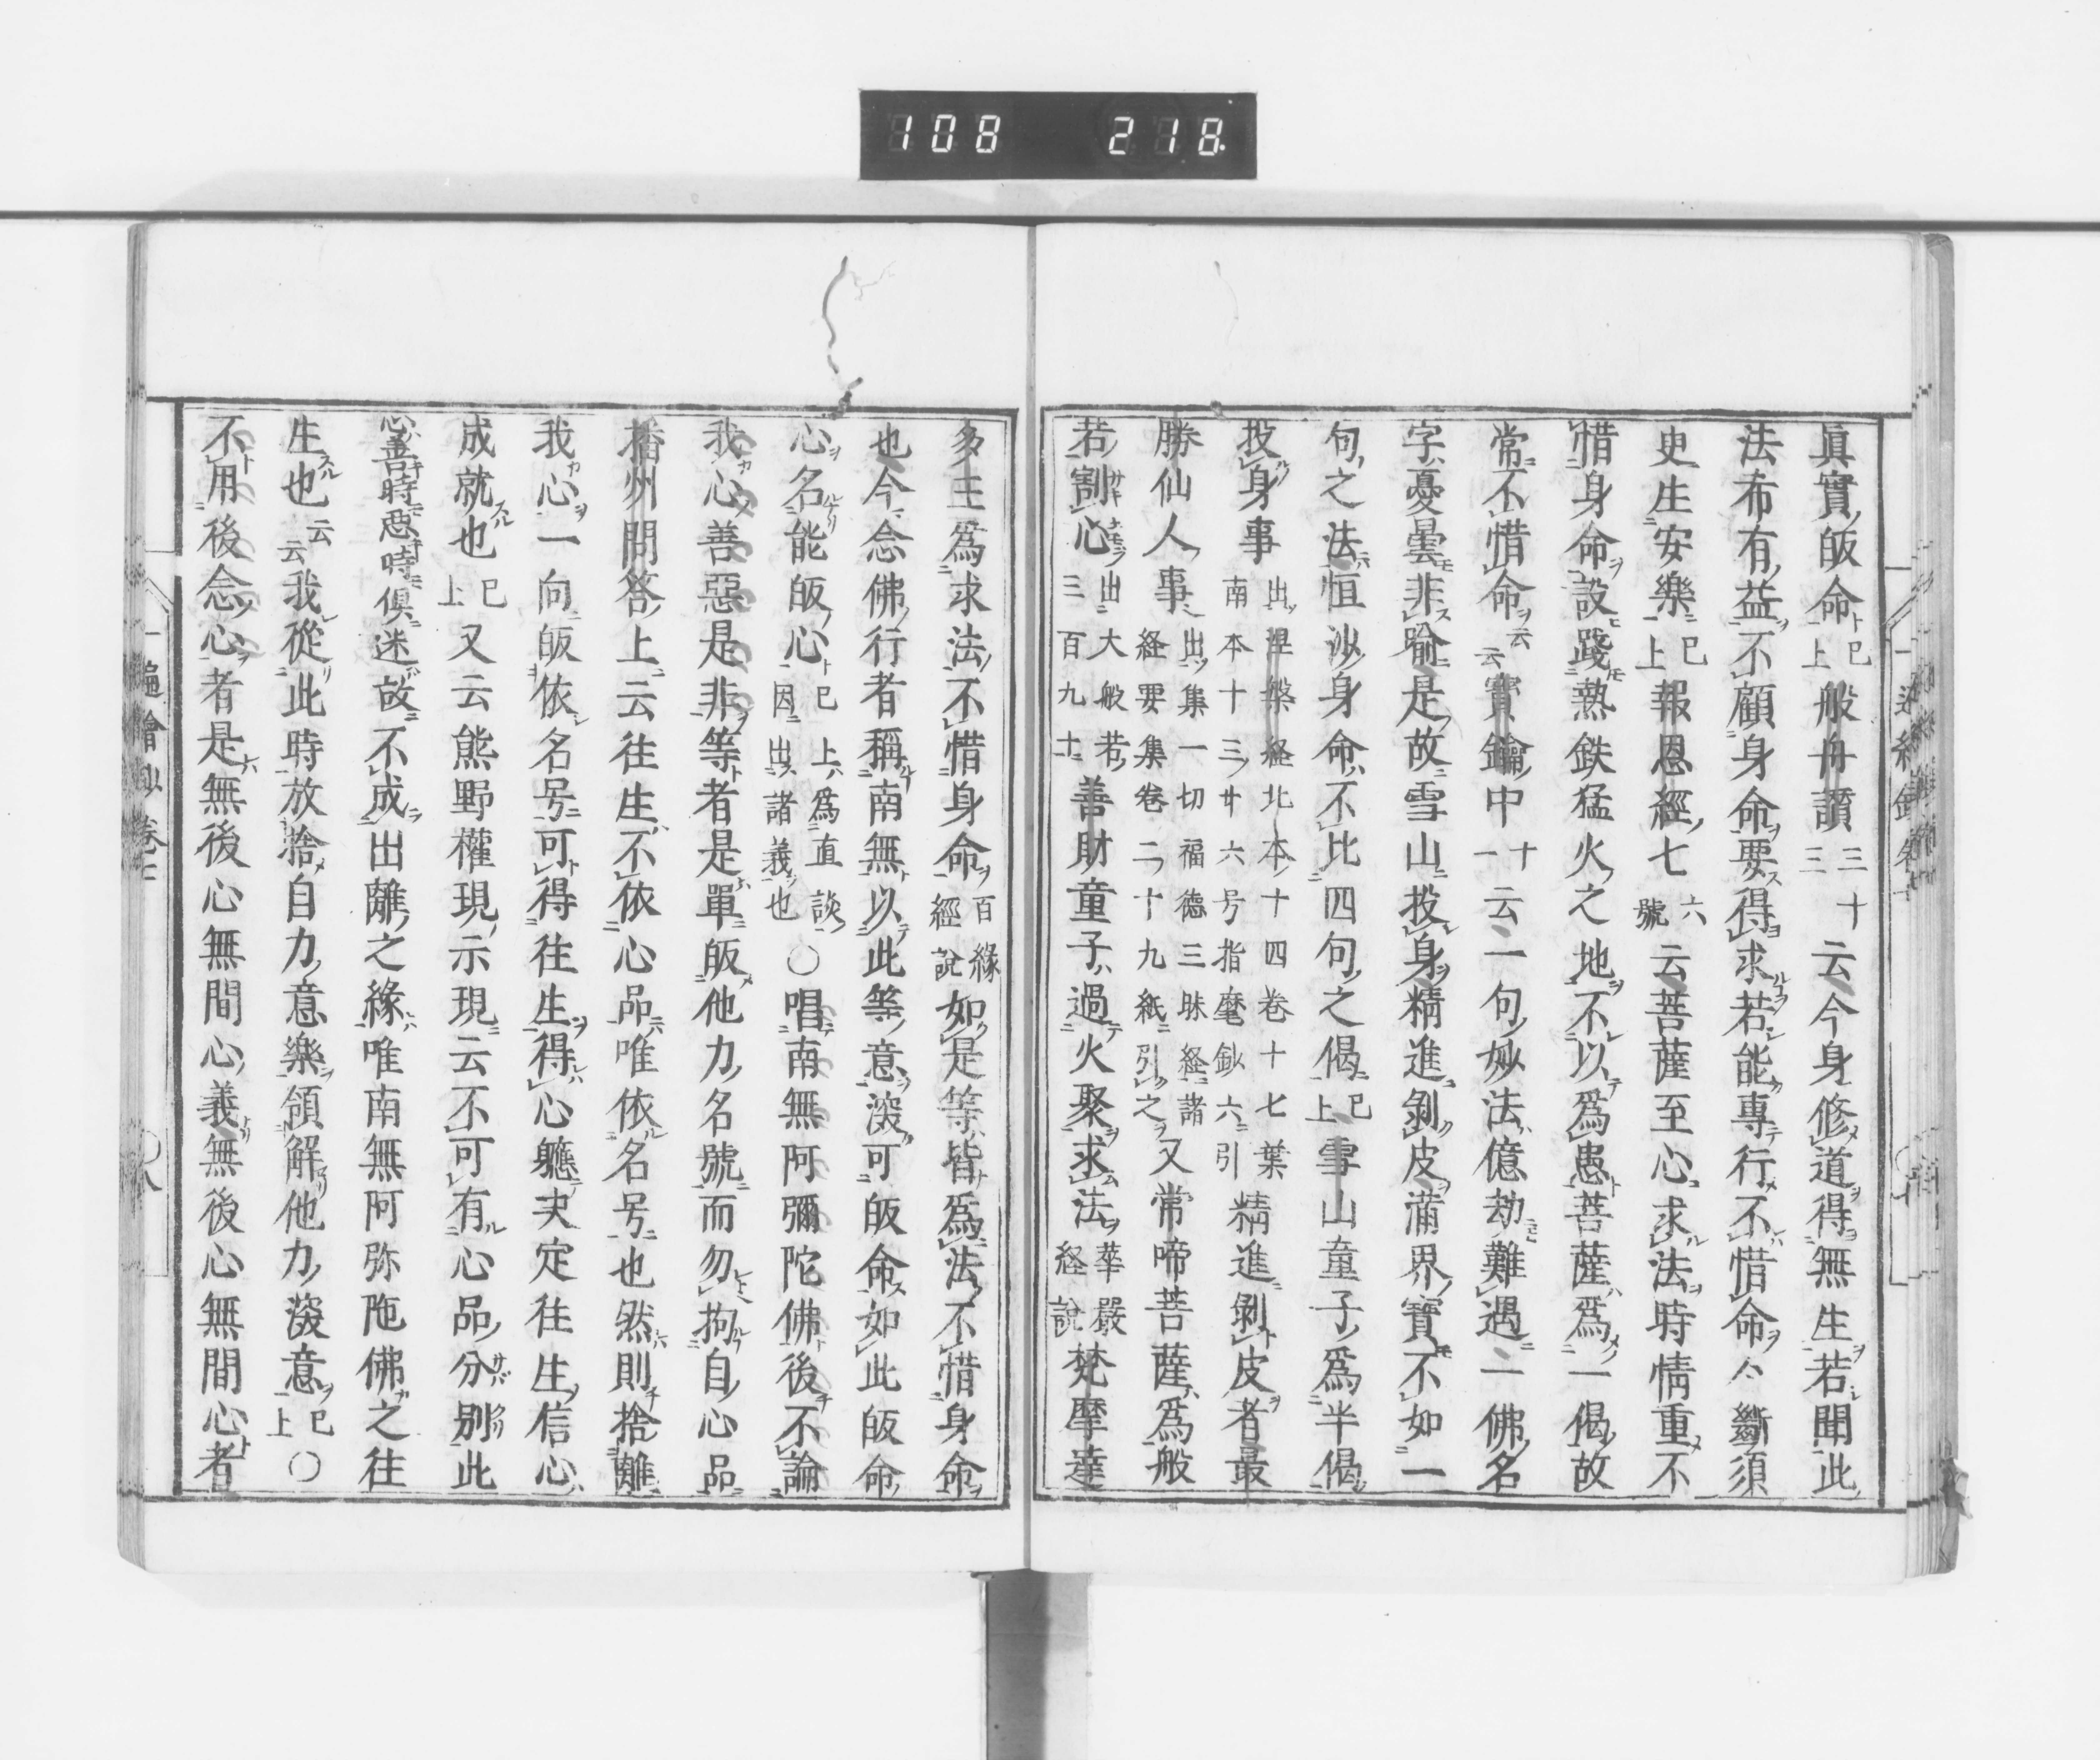 108 218
眞實皈命已上般舟讃三十三云今身修道得無生若聞此
法布有益不顧身命要得求若能專行不惜命亽斷須
史生安樂已上報恩經七六號云菩薩至心求法時情重不
惜身命設踐熱鉄猛火之地不以爲患菩薩爲一偈故
常不惜命云云寳鑰中十一云一句妙法億劫難遇一佛名
字憂曇非喻是故雪山投身精進剝皮滿界寶不如一
句之法恒沙身命不比四句之偈已上雪山童子爲半偈
投身事出涅槃経北本十四卷十七葉南本十三廿六号指麾鈔六引精進剝皮者最
勝仙人事出集一切福德三昧経諸経要集卷二十九紙引之又常啼菩薩爲般
若割心出大般若三百九十善財童子過火聚求法華嚴経説梵摩達
多王爲求法不惜身命百縁經説如是等皆爲法不惜身命
也今念佛行者稱南無以此等意深可皈命如此皈命
心名能皈心已上爲直談因出諸義也○唱南無阿彌陀佛後不論
我心善惡是非等者是單皈他力名號而勿拘自心品
播州問答上云往生不依心品唯依名号也然則捨離
我心一向皈依名号可得往生得心軈夬定往生信心
成就也已上又云熊野權現示現云不可有心品分別此
心善時惡時俱迷故不成出離之緣唯南無阿弥陁佛之往
生也云云我從此時放捨自力意樂領解他力深意已上○
不用後念心者是無後心無間心義無後心無間心者
一遍繪卷七
八